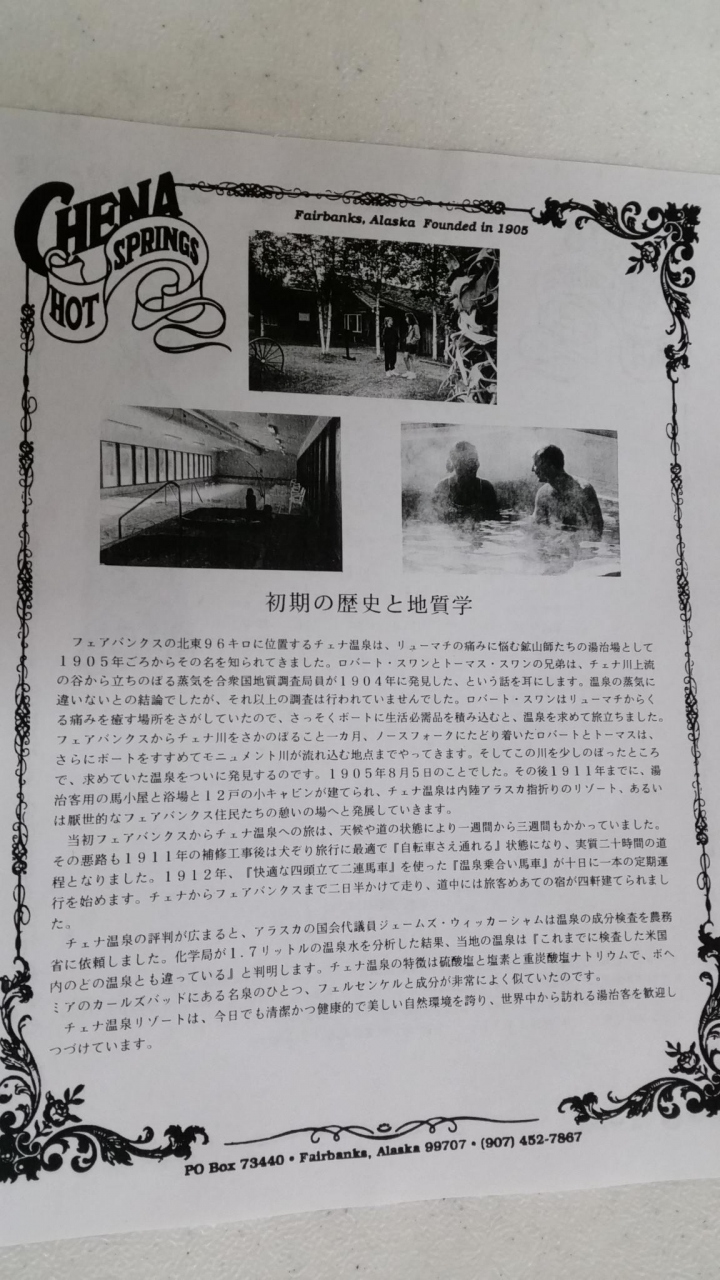 CHENA
HOT
SPRINGS
Fairbanks, Alaska Founded in 1905
初期の歴史と地質学
フェアバンクスの北東９６キロに位置するチェナ温泉は、リューマチの痛みに悩む鉱山師たちの湯治場として
１９０５年ごろからその名を知られてきました。ロバート・スワンとトーマス・スワンの兄弟は、チェナ川上流
の谷から立ちのぼる蒸気を合衆国地質調査局員が１９０４年に発見した、という話を耳にします。温泉の蒸気に
違いないとの結論でしたが、それ以上の調査は行われていませんでした。ロバート・スワンはリューマチからく
る痛みを癒す場所をさがしていたので、さっそくボートに生活必需品を積み込むと、温泉を求めて旅立ちました。
フェアバンクスからチェナ川をさかのぼること一カ月、ノースフォークにたどり着いたロバートとトーマスは、
さらにボートをすすめてモニュメント川が流れ込む地点までやってきます。そしてこの川を少しのぼったところ
で、求めていた温泉をついに発見するのです。１９０５年８月５日のことでした。その後１９１１年までに、湯
治客用の馬小屋と浴場と１２戸の小キャビンが建てられ、チェナ温泉は内陸アラスカ指折りのリゾート、あるい
は厭世的なフェアバンクス住民たちの憩いの場へと発展していきます。
当初フェアバンクスからチェナ温泉への旅は、天候や道の状態により一週間から三週間もかかっていました。
その悪路も１９１１年の補修工事後は犬ぞり旅行に最適で『自転車さえ通れる』状態になり、実質二十時間の道
程となりました。１９１２年、『快適な四頭立て二連馬車』を使った『温泉乗合い馬車』が十日に一本の定期運
行を始めます。チェナからフェアバンクスまで二日半かけて走り、道中には旅客めあての宿が四軒建てられまし
た。
チェナ温泉の評判が広まると、アラスカの国会代議員ジェームズ・ウィッカーシャムは温泉の成分検査を農務
省に依頼しました。化学局が１.７リットルの温泉水を分析した結果、当地の温泉は『これまでに検査した米国
内のどの温泉とも違っている』と判明します。チェナ温泉の特徴は硫酸塩と塩素と重炭酸塩ナトリウムで、ボヘ
ミアのカールズバッドにある名泉のひとつ、フェルセンケルと成分が非常によく似ていたのです。
チェナ温泉リゾートは、今日でも清潔かつ健康的で美しい自然環境を誇り、世界中から訪れる湯治客を歓迎し
つづけています。
PO Box 73440 • Fairbanks, Alaska 99707 • (907) 452-7867